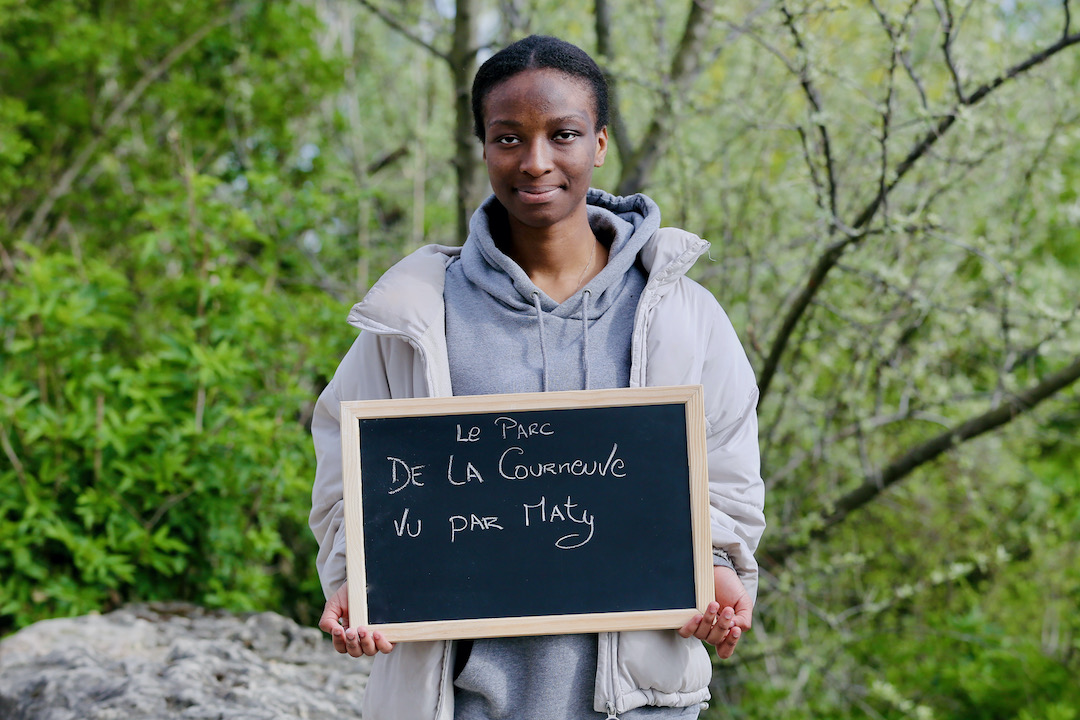 Le Parc
De La Courneuve
Vu par Maty